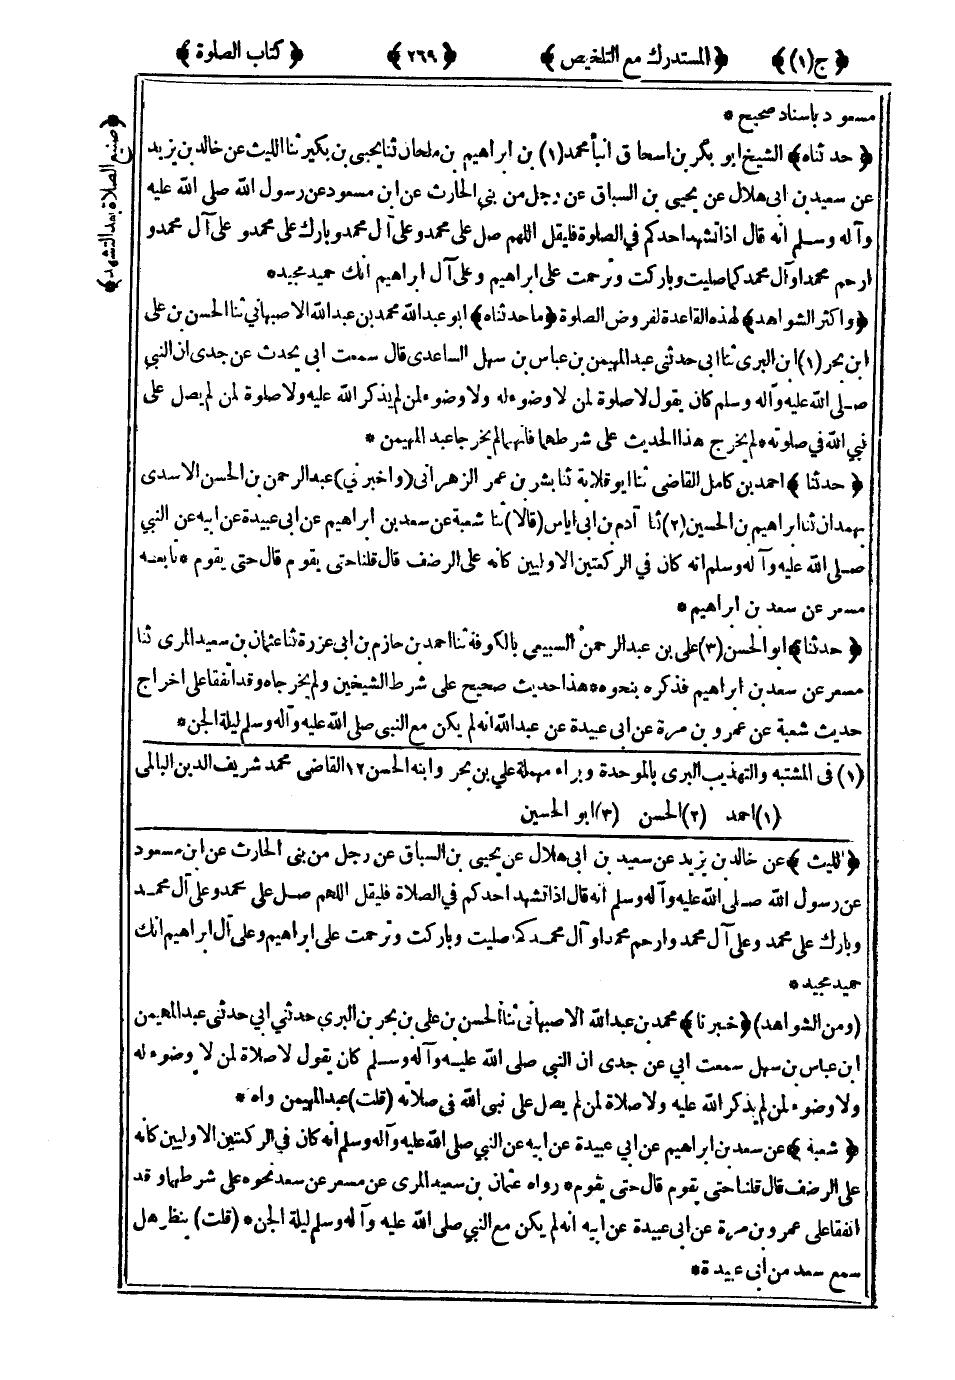 ﴿ج(١)﴾ ﴿المستدرك مع التلخيص﴾ ﴿٢٦٩﴾ ﴿كتاب الصلوة﴾
﴿صيغ الصلاة بعد التشهد﴾
مسعود باسناد صحيح *
﴿حدثناه﴾ الشيخ ابو بكر بن اسحاق انبأ محمد (١) بن ابراهيم بن ملحان ثنا يحيى بن بكير ثنا الليث عن خالد بن يزيد
عن سعيد بن ابى هلال عن يحيى بن السباق عن رجل من بني الحارث عن ابن مسعود عن رسول الله صلى الله عليه
وآله وسلم انه قال اذا تشهد احدكم في الصلوة فليقل اللهم صل على محمد وعلى آل محمد وبارك على محمد و على آل محمد و
ارحم محمدا وآل محمد كما صليت وباركت وترحمت على ابراهيم وعلى آل ابراهيم انك حميد مجيد *
﴿واكثر الشواهد﴾ لهذه القاعدة لفروض الصلوة ﴿ما حدثناه﴾ ابو عبدالله محمد بن عبدالله الاصبهاني ثنا الحسن بن على
ابن بحر (١) ابن البرى ثنا ابى حدثنى عبدالمهيمن بن عباس بن سهل الساعدى قال سمعت ابى يحدث عن جدى ان النبي
صلى الله عليه وآله وسلم كان يقول لا صلوة لمن لا وضوء له ولا وضوء لمن لم يذكر الله عليه ولا صلوة لمن لم يصل على
نبي الله في صلوته * لم يخرج هذا الحديث على شرطهما فانهما لم يخرجا عبد المهيمن *
﴿حدثنا﴾ احمد بن كامل القاضى ثنا ابو قلابة ثنا بشر بن عمر الزهرانى (واخبرني) عبدالرحمن بن الحسن الاسدى
بهمدان ثنا ابراهيم بن الحسين (٢) ثنا آدم بن ابى اياس (قالا) ثنا شعبة عن سعد بن ابراهيم عن ابى عبيدة عن ابيه عن النبي
صلى الله عليه وآله وسلم انه كان في الركعتين الاوليين كانه على الرضف قال قلنا حتى يقوم قال حتى يقوم * تابعه
مسعر عن سعد بن ابراهيم *
﴿حدثنا﴾ ابو الحسن (٣) على بن عبدالرحمن السبيعي بالكوفة ثنا احمد بن حازم بن ابى عزرة ثنا عثمان بن سعيد المرى ثنا
مسعر عن سعد بن ابراهيم فذكره بنحوه * هذا حديث صحيح على شرط الشيخين ولم يخرجاه وقد اتفقا على اخراج
حديث شعبة عن عمرو بن مرة عن ابى عبيدة عن عبدالله انه لم يكن مع النبي صلى الله عليه وآله وسلم ليلة الجن *
(١) فى المشتبه والتهذيب البرى بالموحدة وبراء مهملة علي بن بحر وابنه الحسن ١٢ القاضى محمد شريف الدين البالمى
(١) احمد (٢) الحسن (٣) ابو الحسين
﴿الليث﴾ عن خالد بن يزيد عن سعيد بن ابى هلال عن يحيى بن السباق عن رجل من بنى الحارث عن ابن مسعود
عن رسول الله صلى الله عليه وآله وسلم أنه قال اذا تشهد احدكم في الصلاة فليقل اللهم صل على محمد وعلى آل محمد
وبارك على محمد وعلى آل محمد وارحم محمدا وآل محمد كما صليت وباركت وترحمت على ابراهيم وعلى آل ابراهيم انك
حميد مجيد *
(ومن الشواهد) ﴿خبرنا﴾ محمد بن عبدالله الاصبهانى ثنا الحسن بن على بن بحر بن البرى حدثني ابي حدثنى عبدالمهيمن
ابن عباس بن سهل سمعت ابي عن جدى ان النبي صلى الله عليه وآله وسلم كان يقول لا صلاة لمن لا وضوء له
ولا وضوء لمن لم يذكر الله عليه ولا صلاة لمن لم يصل على نبى الله فى صلاته (قلت) عبدالمهيمن واه *
﴿شعبة﴾ عن سعد بن ابراهيم عن ابي عبيدة عن ابيه عن النبي صلى الله عليه وآله وسلم أنه كان في الركعتين الاوليين كانه
على الرضف قال قلنا حتى يقوم قال حتى يقوم * رواه عثمان بن سعيد المرى عن مسعر عن سعد نحوه على شرطهما وقد
اتفقا على عمرو بن مرة عن ابى عبيدة عن ابيه انه لم يكن مع النبي صلى الله عليه وآله وسلم ليلة الجن * (قلت) ينظر هل
سمع سعد من أبى عبيدة *